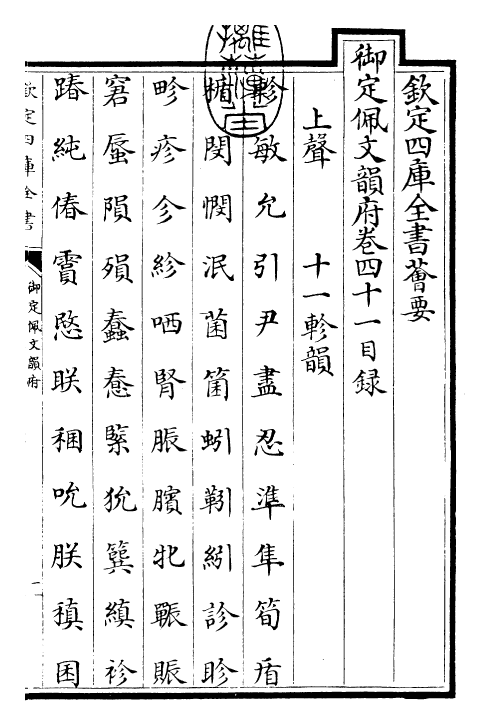 欽定四庫全書薈要
御定佩文韻府卷四十一目録
上聲　十一軫韻
軫敏允引尹盡忍準隼筍盾
楯閔憫泯菌箘蚓靷紖診眕
畛疹㐱紾哂腎脤臏牝辴賑
窘蜃隕殞蠢惷緊狁簨縝袗
踳純偆霣愍眹稛吮朕稹囷
欽定四庫全書
御定佩文韻府
一